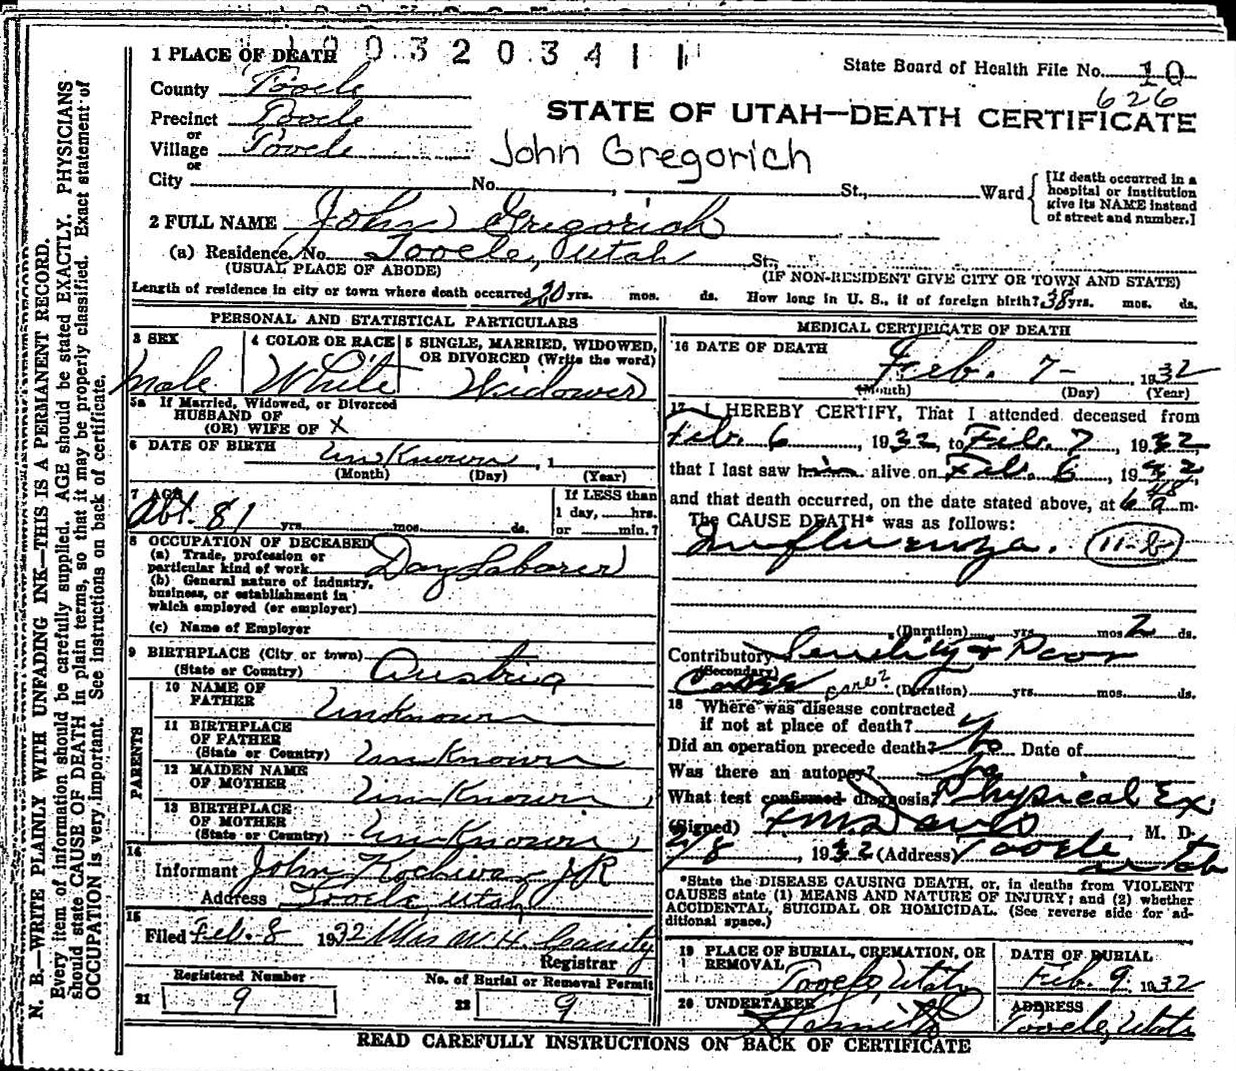 1 PLACE OF DEATH
10032034
State Board of Health File No. 10
626
County Tooele
STATE OF UTAH—DEATH CERTIFICATE
Precinct Tooele
or
Village Tooele
John Gregorich
or
City No. St., Ward
[If death occurred in a hospital or institution give its NAME instead of street and number.]
2 FULL NAME John Gregorich
(a) Residence, No. Tooele, Utah St.,
(USUAL PLACE OF ABODE) (IF NON-RESIDENT GIVE CITY OR TOWN AND STATE)
Length of residence in city or town where death occurred 20 yrs. mos. ds. How long in U. S., if of foreign birth? 38 yrs. mos. ds.
PERSONAL AND STATISTICAL PARTICULARS
3 SEX
Male
4 COLOR OR RACE
White
5 SINGLE, MARRIED, WIDOWED, OR DIVORCED (Write the word)
Widower
5a If Married, Widowed, or Divorced
HUSBAND OF
(OR) WIFE OF X
6 DATE OF BIRTH Unknown, 1
(Month) (Day) (Year)
7 AGE
Abt. 81 yrs. mos. ds.
If LESS than
1 day, hrs.
or min.?
8 OCCUPATION OF DECEASED
(a) Trade, profession or
particular kind of work Day Laborer
(b) General nature of industry,
business, or establishment in
which employed (or employer)
(c) Name of Employer
9 BIRTHPLACE (City or town)
(State or Country) Austria
PARENTS
10 NAME OF
FATHER Unknown
11 BIRTHPLACE
OF FATHER
(State or Country) Unknown
12 MAIDEN NAME
OF MOTHER Unknown
13 BIRTHPLACE
OF MOTHER
(State or Country) Unknown
14
Informant John JR
Address Tooele, Utah
15
Filed Feb. 8 1932 Mrs W. H.
Registrar
Registered Number No. of Burial or Removal Permit
21 9 22 9
MEDICAL CERTIFICATE OF DEATH
16 DATE OF DEATH
Feb. 7- 1932
(Month) (Day) (Year)
17 I HEREBY CERTIFY, That I attended deceased from
Feb. 6, 1932, to Feb. 7, 1932,
that I last saw him alive on Feb. 6, 1932,
and that death occurred, on the date stated above, at 6 48 a m.
The CAUSE DEATH* was as follows:
Influenza. 11-b
(Duration) yrs. mos. 2 ds.
Contributory Senility & Poor
(Secondary)
care? (Duration) yrs. mos. ds.
18 Where was disease contracted
if not at place of death?
Did an operation precede death? No Date of
Was there an autopsy? No
What test confirmed diagnosis? Physical Ex.
(Signed) F M Davis, M. D.
2/8, 1932 (Address) Tooele Utah
*State the DISEASE CAUSING DEATH, or, in deaths from VIOLENT
CAUSES state (1) MEANS AND NATURE OF INJURY; and (2) whether
ACCIDENTAL, SUICIDAL OR HOMICIDAL. (See reverse side for ad-
ditional space.)
19 PLACE OF BURIAL, CREMATION, OR
REMOVAL Tooele, Utah
DATE OF BURIAL
Feb. 9. 1932
20 UNDERTAKER
ADDRESS
Tooele, Utah
READ CAREFULLY INSTRUCTIONS ON BACK OF CERTIFICATE
N. B.—WRITE PLAINLY WITH UNFADING INK—THIS IS A PERMANENT RECORD.
Every item of information should be carefully supplied. AGE should be stated EXACTLY. PHYSICIANS
should state CAUSE OF DEATH in plain terms, so that it may be properly classified. Exact statement of
OCCUPATION is very important. See instructions on back of certificate.